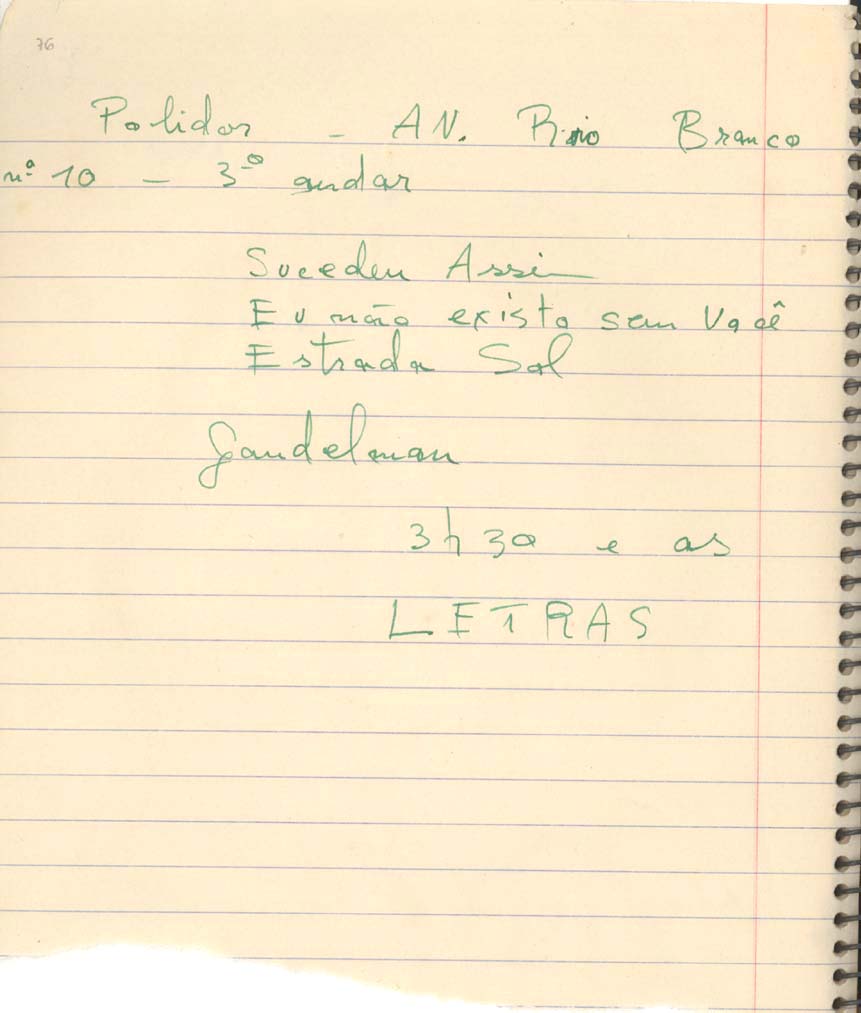 76
Polidor - AV. Rio Branco
nº 10 - 3º andar
Sucedeu Assim
Eu não existo sem Você
Estrada Sol
Gandelman
3h30 e as
LETRAS